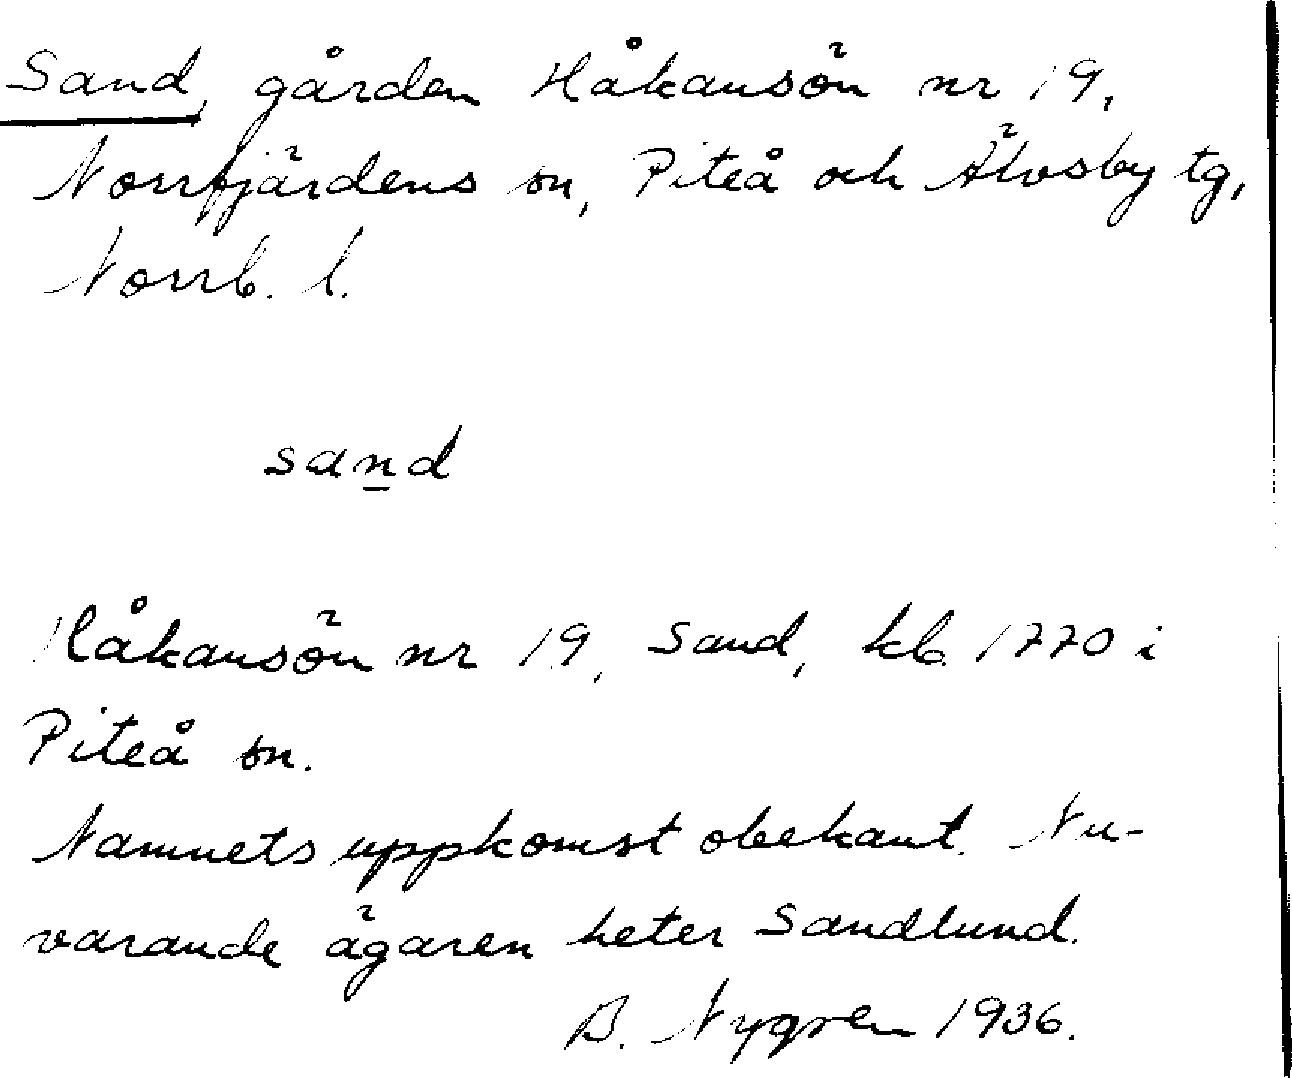 Sand, gården Håkansön nr 19,
Norrfjärdens sn, Piteå och Älvsby tg,
Norrb. l.
sand
Håkansön nr 19, Sand, kb 1770 i
Piteå sn.
Namnets uppkomst obekant. Nu-
varande ägaren heter Sandlund.
B. Nygren 1936.